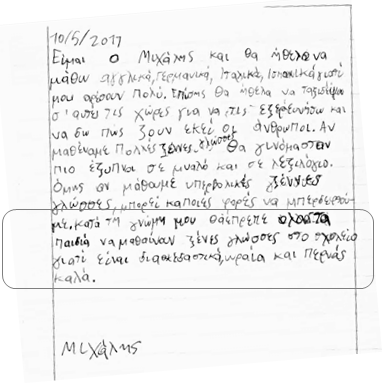 10/5/2011
Είμαι ο Μιχάλης και θα ήθελα να
μάθω αγγλικά, Γερμανικά, Ιταλικά, Ισπανικά γιατί
μου αρέσουν πολύ. Επίσης θα ήθελα να ταξιδέψω
σ' αυτές τις χώρες για να τις εξερευνήσω και
να δω πώς ζουν εκεί οι άνθρωποι. Αν
μαθέναμε πολλές ξένες γλώσσες θα γινόμασταν
πιο έξυπνοι σε μυαλό και σε λεξιλόγιο.
Όμως αν μάθουμε υπερβολικές ξένες
γλώσσες, μπορεί κάποιες φορές να μπερδευτού-
με. κατά τη γνώμη μου θα έπρεπε όλα τα
παιδιά να μαθαίνουν ξένες γλώσσες στο σχολείο
γιατί είναι διασκεδαστικά, ωραία και περνάς
καλά.
Μιχάλης